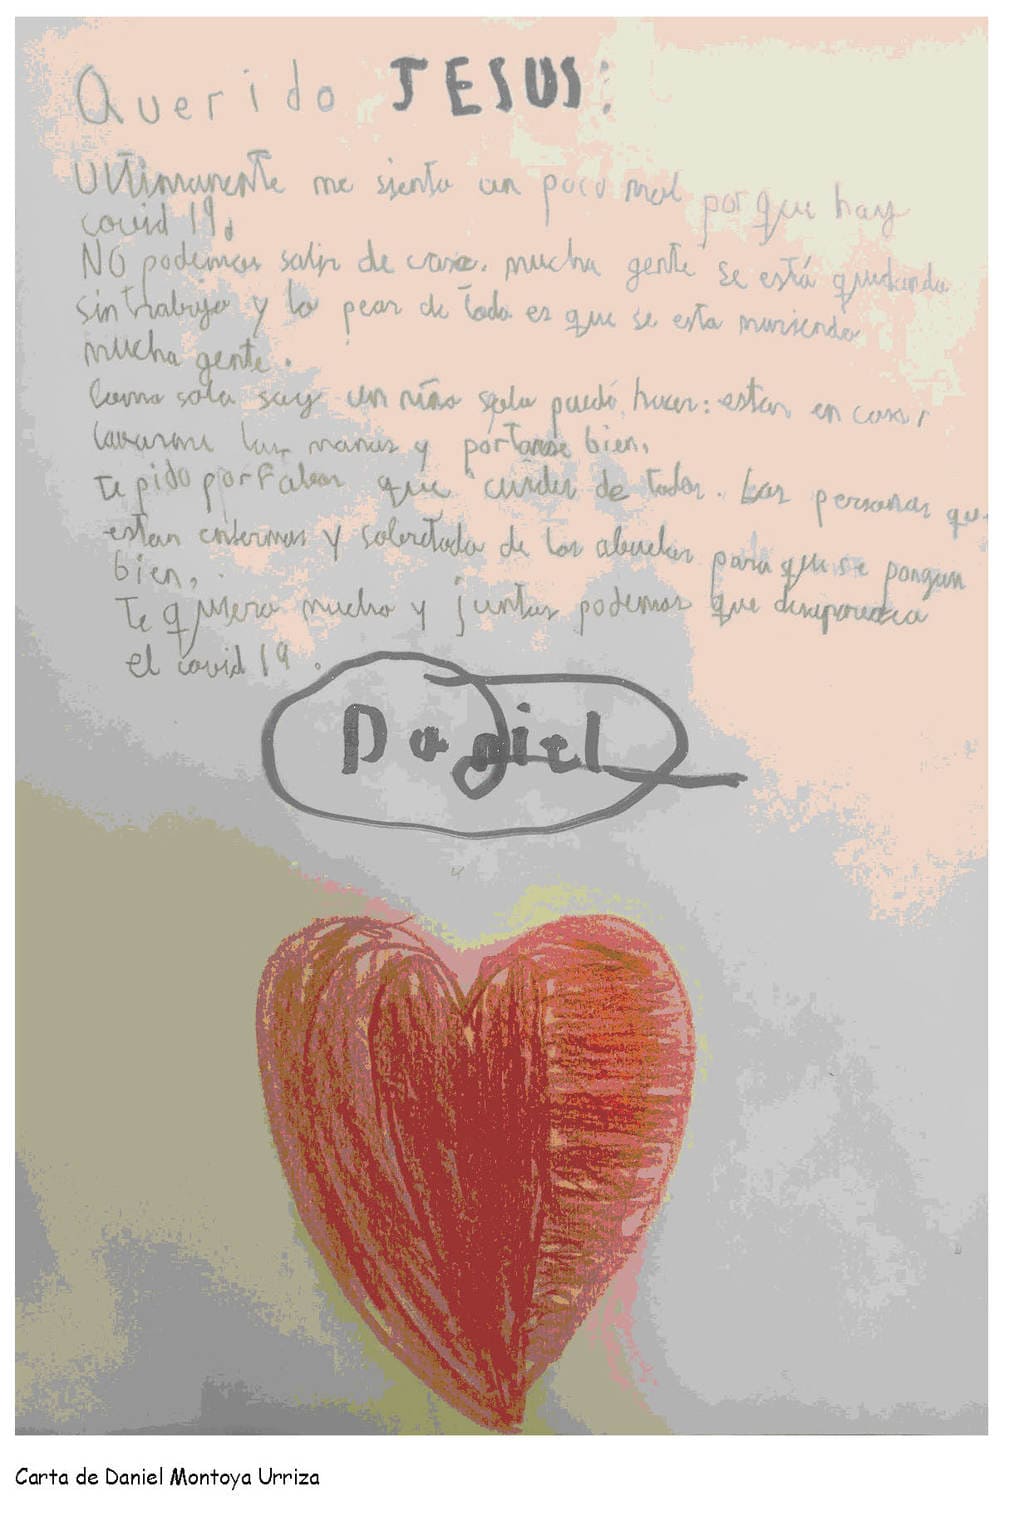 Querido JESUS:
Ultimamente me siento un poco mal porque hay
covid 19.
NO podemos salir de casa. mucha gente se está quedando
sin trabajo y lo pear de todo es que se esta muriendo
mucha gente.
Como solo soy un niño solo puedo hacer: estar en casa,
lavarme las manos y portarse bien.
te pido porfabor que cuides de todos. Las personas que
estan enfermas y sobretodo de los abuelos para que se pongan
bien.
Te quiero mucho y juntos podemos que desaparezca
el covid 19.
Daniel
Carta de Daniel Montoya Urriza